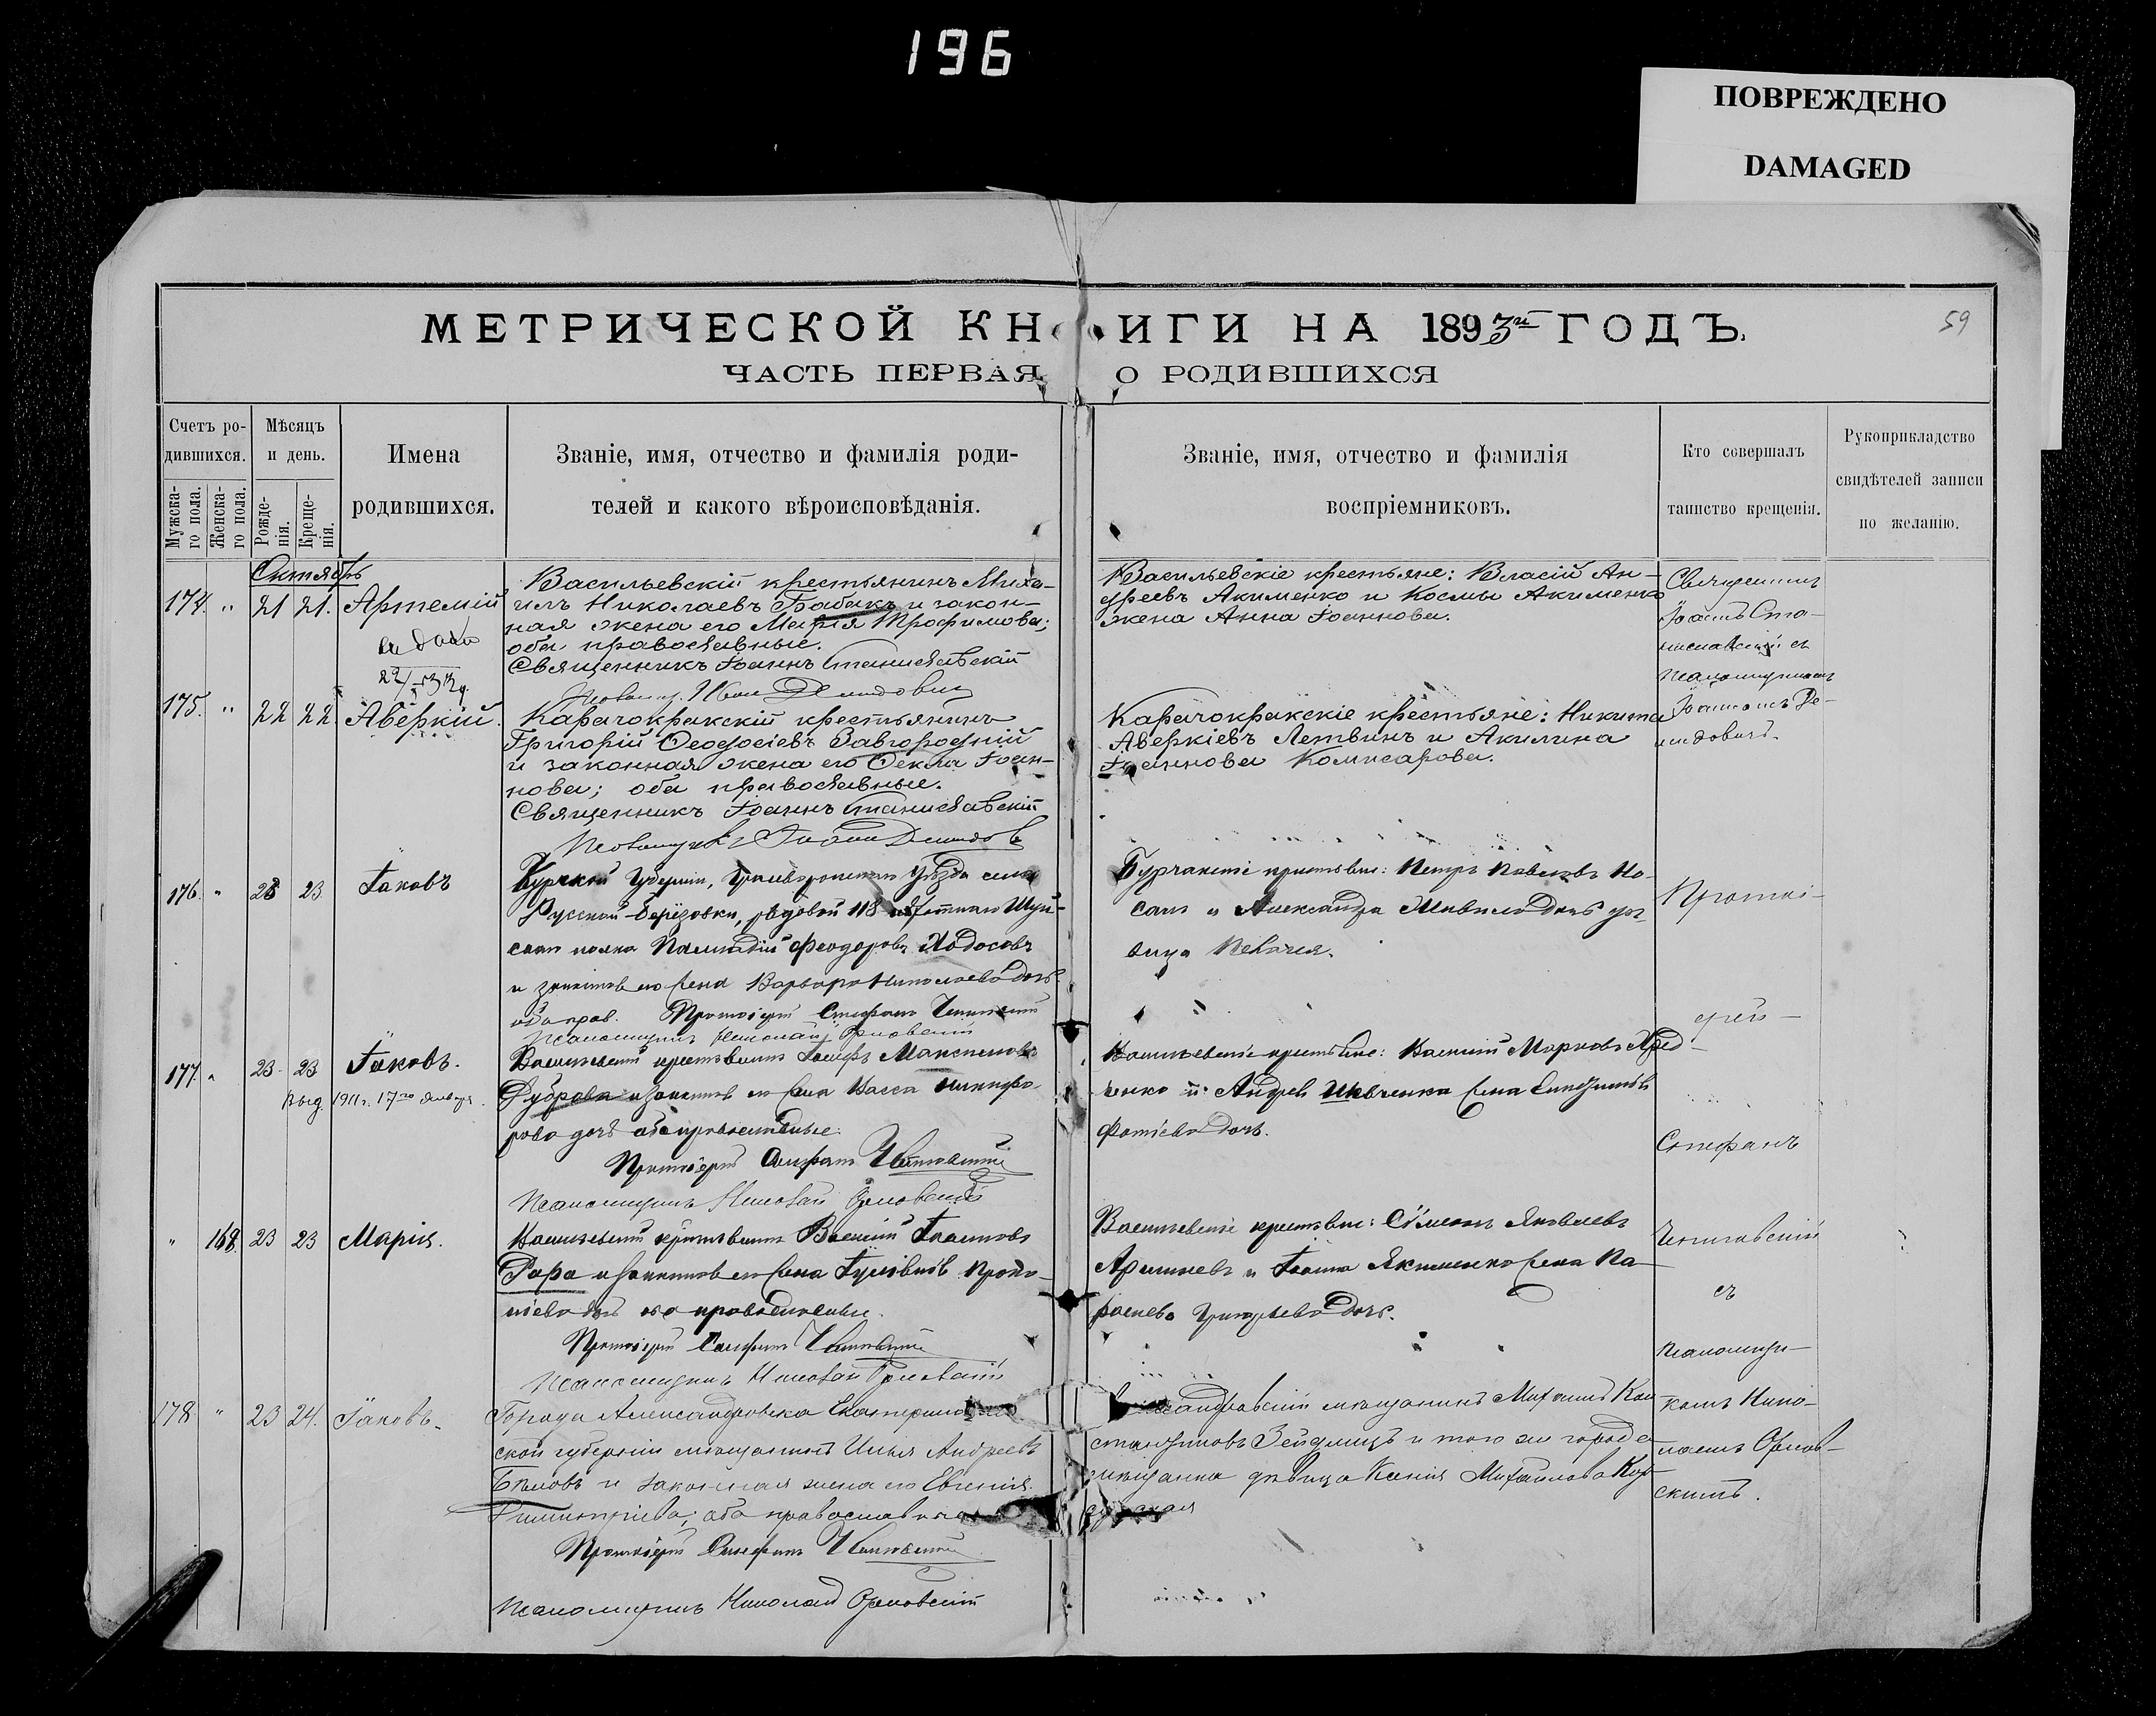 196
ПОВРЕЖДЕНО
DAMAGED
59
МЕТРИЧЕСКОЙ КНИГИ НА 1893й ГОДЪ.
ЧАСТЬ ПЕРВАЯ О РОДИВШИХСЯ
Счетъ ро-
дившихся.
Мужска-
го пола.
Женска-
го пола.
Мѣсяцъ
и день.
Рожде-
нія.
Креще-
нія.
Имена
родившихся.
Званіе, имя, отчество и фамилія роди-
телей и какого вѣроисповѣданія.
Званіе, имя, отчество и фамилія
воспріемниковъ.
Кто совершалъ
таинство крещенія.
Рукоприкладство
свидѣтелей записи
по желанію.
Октябрь
174. " 21 21. Артемій
Васильевскій крестьянинъ Миха-
илъ Николаевъ Бабакъ и закон-
ная жена его Марія Трофимова;
оба православные.
Священникъ Іоаннъ Станиславскій
Васильевскіе крестьяне: Власій Ан-
дреевъ Акименко и Космы Акименко
жена Анна Іоаннова.
Священникъ
Іоаннъ Ста-
ниславскій съ
псаломщикомъ
Іоанномъ Де-
мидовичъ.
175. " 22 22. Аверкій.
Карачокракскій крестьянинъ
Григорій Ѳеодосіевъ Завгородній
и законная жена его Ѳекла Іоан-
нова; оба православные.
Священникъ Іоаннъ Станиславскій
Карачокракскіе крестьяне: Никита
Аверкіевъ Летвинъ и Акилина
Іоаннова Комисарова.
176. " 23 23 Іаковъ
Курской Губерніи, Грайворонскаго Уѣзда села
Русской Берёзовки, рядовой 118 пѣхотнаго Шуй-
скаго полка Палладій Феодоровъ Ходосовъ
и законная его жена Варвара Николаева дочь
оба прав. Протоіерей Стефанъ
Псаломщикъ Николай Орловскій
Петръ Павловъ Но-
и Александра дочь дѣ-
вица
Протоі-
ерей
177. " 23 23 Іаковъ.
Выд. 1911 г. 17го Января.
Васильевскій крестьянинъ Іосифъ Максимовъ
Дуброва и законная его жена Васса Никифо-
рова дочь оба православные.
Протоіерей Стефанъ
Псаломщикъ Николай Орловскій
Васильевскіе крестьяне: Василій Марковъ
и Андрея Шевченка жена
Фотіева дочь.
Стефанъ
" 168 23 23 Марія.
Васильевскій крестьянинъ Василій
Рара и законная его жена Гуліанія Проко-
піева дочь оба православные.
Протоіерей Стефанъ
Псаломщикъ Николай Орловскій
Васильевскіе крестьяне: Сѵмеонъ Яковлевъ
и Іоанна Якименко жена Па-
раскева Григорьева дочь.
съ
псаломщи-
комъ Нико-
лаемъ Орлов-
скимъ.
178 " 23 24. Іаковъ.
Города Александровска Екатеринослав
ской губерніи мѣщанинъ Илья Андреевъ
Бѣловъ и законная жена его Евгенія
Димитріева; оба православные
Протоіерей Стефанъ
Псаломщикъ Николай Орловскій
Александровскій мѣщанинъ Михаилъ Кон
стантиновъ Зейдлицъ и того же города
мѣщанка дѣвица Ксенія Михайлова